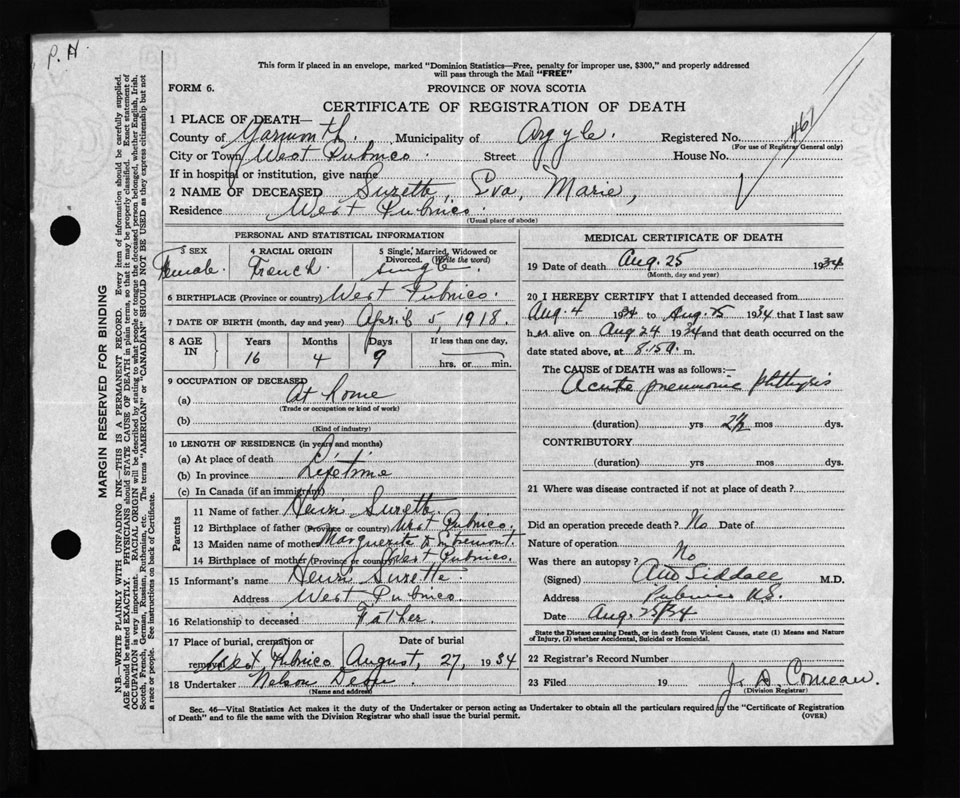 P. H.
This form if placed in an envelope, marked "Dominion Statistics—Free, penalty for improper use, $300," and properly addressed
will pass through the Mail "FREE"
FORM 6. PROVINCE OF NOVA SCOTIA
CERTIFICATE OF REGISTRATION OF DEATH
1 PLACE OF DEATH—
County of Yarmouth Municipality of Argyle. Registered No. 467
(For use of Registrar General only)
City or Town West Pubnico. Street House No.
If in hospital or institution, give name
2 NAME OF DECEASED Surette, Eva, Marie,
Residence West Pubnico.
(Usual place of abode)
PERSONAL AND STATISTICAL INFORMATION
3 SEX 4 RACIAL ORIGIN 5 Single, Married, Widowed or
Divorced. (Write the word)
Female. French. Single.
6 BIRTHPLACE (Province or country) West Pubnico.
7 DATE OF BIRTH (month, day and year) April 5, 1918.
8 AGE IN Years Months Days If less than one day,
16 4 9 hrs. or min.
9 OCCUPATION OF DECEASED
(a) At home
(Trade or occupation or kind of work)
(b)
(Kind of industry)
10 LENGTH OF RESIDENCE (in years and months)
(a) At place of death
(b) In province Lifetime
(c) In Canada (if an immigrant)
Parents
11 Name of father Henri Surette
12 Birthplace of father (Province or country) West Pubnico.
13 Maiden name of mother Marguerite d'Entremont.
14 Birthplace of mother (Province or country) West Pubnico.
15 Informant's name Henri Surette.
Address West Pubnico.
16 Relationship to deceased Father.
17 Place of burial, cremation or Date of burial
removal West Pubnico August, 27, 1934
18 Undertaker Nelson
(Name and address)
MEDICAL CERTIFICATE OF DEATH
19 Date of death Aug. 25 1934
(Month, day and year)
20 I HEREBY CERTIFY that I attended deceased from
Aug. 4 1934 to Aug. 25 1934 that I last saw
her alive on Aug 24 1934 and that death occurred on
the date stated above, at 8.50. m.
The CAUSE of DEATH was as follows:—
Acute pneumonic phthysis
(duration) yrs 2½ mos dys.
CONTRIBUTORY
(duration) yrs mos dys.
21 Where was disease contracted if not at place of death?
Did an operation precede death? No Date of
Nature of operation
Was there an autopsy? No
(Signed) Siddall M.D.
Address Pubnico N.S.
Date Aug. 25/34
State the Disease causing Death, or in death from Violent Causes, state (1) Means and Nature
of Injury, (2) whether Accidental, Suicidal or Homicidal.
22 Registrar's Record Number
23 Filed 19 J. A. Comeau.
(Division Registrar)
Sec. 46—Vital Statistics Act makes it the duty of the Undertaker or person acting as Undertaker to obtain all the particulars required in the "Certificate of Registration
of Death" and to file the same with the Division Registrar who shall issue the burial permit. (OVER)
MARGIN RESERVED FOR BINDING
N.B.—WRITE PLAINLY WITH UNFADING INK—THIS IS A PERMANENT RECORD. Every item of information should be carefully supplied.
AGE should be stated EXACTLY. PHYSICIANS should STATE CAUSE OF DEATH in plain terms, so that it may be properly classified. Exact statement of
OCCUPATION is very important. RACIAL ORIGIN will be described by stating to what people or tongue the deceased person belonged, whether English, Irish,
Scotch, French, German, Russian, Ruthenian, etc. The terms "AMERICAN" or "CANADIAN" SHOULD NOT BE USED as they express citizenship but not
a race or people. See instructions on back of Certificate.